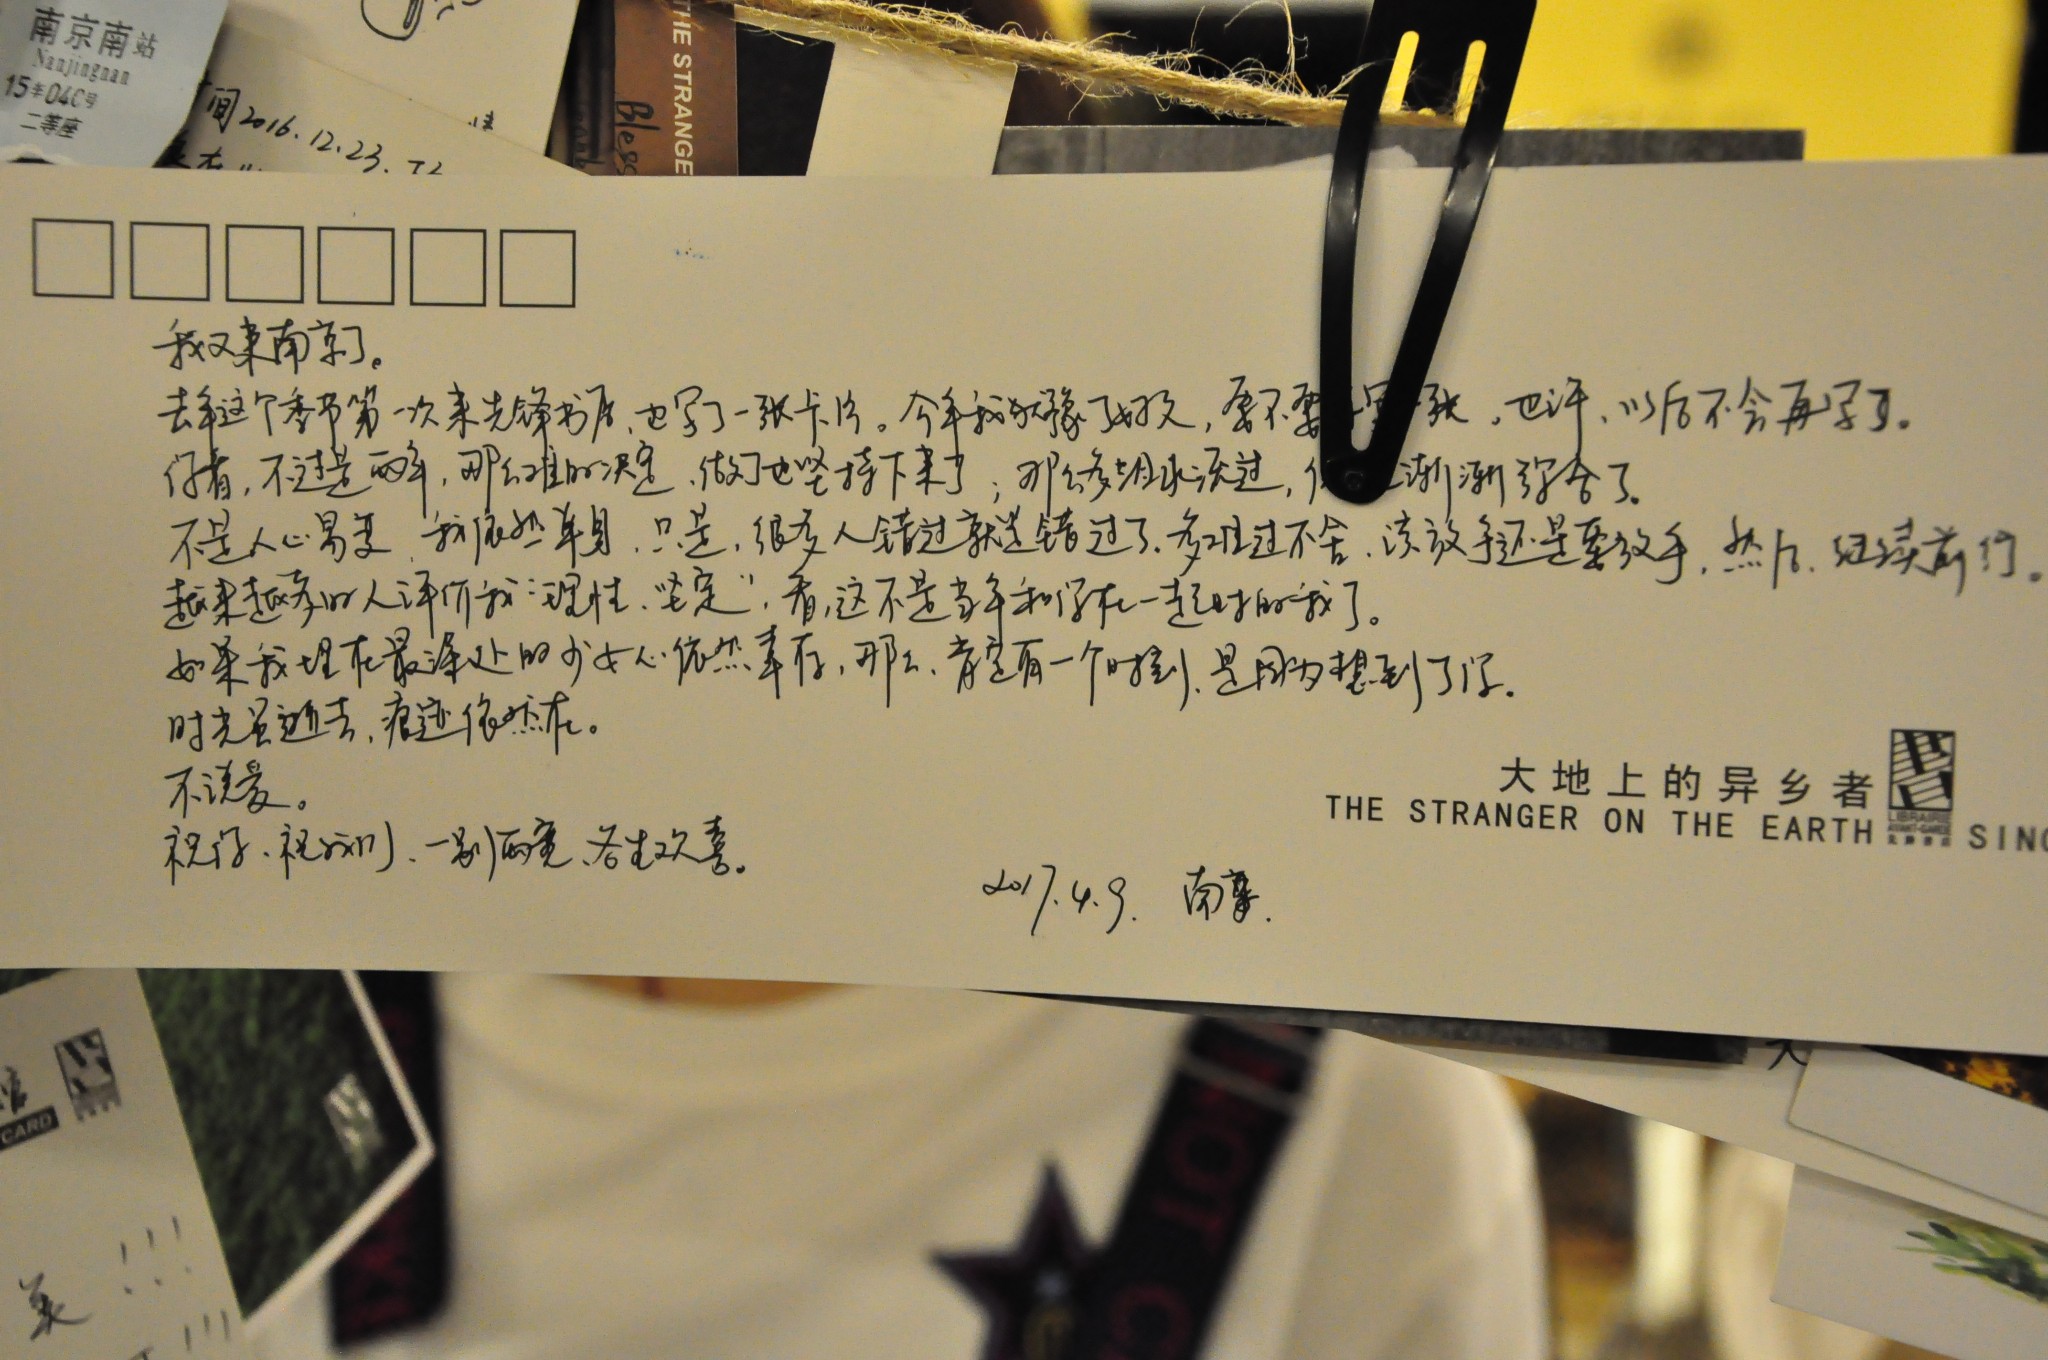 南京南站
Nanjingnan
15车04C号
二等座
间2016.12.23.
THE STRANGE
Bless
我又来南京了。
去年这个季节第一次来先锋书店、也写了一张卡片。今年我犹豫了好久，要不要 写 张，也许、以后不会再写了。
你看，不过是两年，那么难的决定、做了也坚持下来了；那么多 泪水流过， 渐渐弥合了。
不是人心易变、我依然单身、只是，很多人错过就是错过了、多难过不舍、该放手还是要放手，然后、继续前行。
越来越多的人评价我“理性、坚定”，看，这不是当年和你在一起时的我了。
如果我埋在最深处的少女心依然幸存，那么、肯定有一个时刻、是因为想到了你。
时光虽逝去，痕迹依然在。
不读爱。
祝你、祝我们、一别两宽、各生欢喜。
2017.4.9. 南京.
大地上的异乡者
THE STRANGER ON THE EARTH
LIBRAIRIE
AVANT-GARDE
先锋书店
SING
CARD
美 !!!
!!!
大
HOT